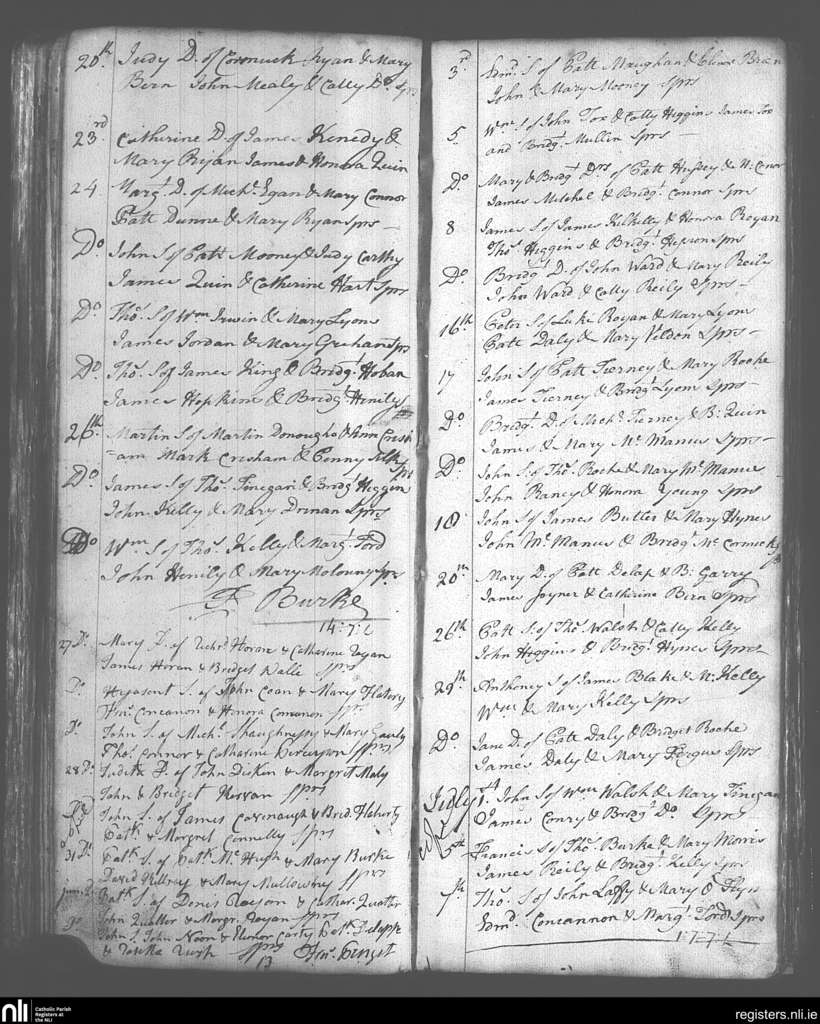 20th Judy D. of Cormuck Ryan & Mary
Bern John Mealy & Catty Do. Sprs
23rd Catherine D. of James Kenedy &
Mary Ryan James & Honora Quin
24 Margt. D. of Michl. Egan & Mary Connor
Patt Dunne & Mary Ryan Sprs
Do John S of Patt Mooney & Judy Carthy
James Quin & Catherine Hart Sprs
Do Thos. S of Wm Irwin & Mary Lyons
James Jordan & Mary Grehan Sprs
Do. Tho. S of James King & Bridgt. Hoban
James Hopkins & Bridgt. Henily Sprs
26th Martin S of Martin Donougho & Ann Crish
=am Mark Crisham & Penny Sprs
Do James S of Thos. Finegan & Bridgt Higgin
John Kelly & Mary Drinan Sprs
Do Wm S of Thos. Kelly & Margt. Ford
John Henily & Mary Molouny Sprs
Burke
14:7:6
27 Do. Mary D. of Richrd Horan & Catherine Ryan
James Horan & Bridget Walle Sprs
Do. Hyasent S. of John Coan & Mary Flatery
Concanon & Honora Conanon sprs
Do. John S. of Michl. Shaughnessy & Mary
Thos. Connor & Catharine sprs
28 Do. Juditk D. of John Disken & Margret Maly
John & Bridget sprs
John S. of James Cavenaugh & Brid. Flaherty
Patk. & Margret Connelly Sprs
31 Do. Patk S. of Patk Mc Hugh & Mary Burke
David & Mary Mullowny sprs
june 2 Patk S. of Denis & Cathar. Quatter
John Quatter & Margr. Ryan Sprs
John S. John Noon & Honor Carty Patk Delapp
& Sprs
13
3rd Edmd. S of Patt Maughan & Elenor Bran
John & Mary Mooney Sprs
5 Wm S of John Fox & Catty Higgins James Fox
and Bridgt. Mullin Sprs
Do Mary & Bridgt Drs of Patt Hussey & M: Conor
James Mitchel & Bridgt. Connor Sprs
8 James S of James Kilkelly & Honora Royan
Thos. Higgins & Bridgt. Hepson Sprs
Do Bridgt D. of John Ward & Mary Reily
John Ward & Catty Reily Sprs
16th Peter S of Luke Royan & Mary Lyons
Patt Daly & Mary Veldon Sprs
17 John S of Patt Tierney & Mary Roche
James Tierney & Bridgt Lyons Sprs
Do Bridgt. D. of Michl. Tierney & B: Quin
James & Mary Mc. Manus Sprs
Do John S. of Thos. Roche & Mary Mc. Manus
John Raney & Honora Young Sprs
18 John S of James Butler & Mary Hynes
John Mc. Manus & Bridgt Mc. Cormick Sprs
20th Mary D. of Patt Delap & B: Garry
James Joyner & Catherine Bern Sprs
26th Patt S. of Thos. Walsh & Catty Kelly
John Higgins & Bridgt Hynes Sprs
29th Anthoney S of James Blake & M: Kelly
Wm & Mary Kelly Sprs
Do Jane D. of Patt Daly & Bridget Roche
James Daly & Mary Fergus Sprs
July 1st. John S of Wm Walsh & Mary Finegan
James Conry & Bridgt Do. Sprs
5th Francis S of Thos. Burke & Mary Morris
James Reily & Bridgt. Kelly Sprs
7th Thos. S of John Laffy & Mary O Flyn
Edmd. Concannon & Margt. Ford Sprs
1:7:7:6
nli
Catholic Parish
Registers at
the NLI
registers.nli.ie